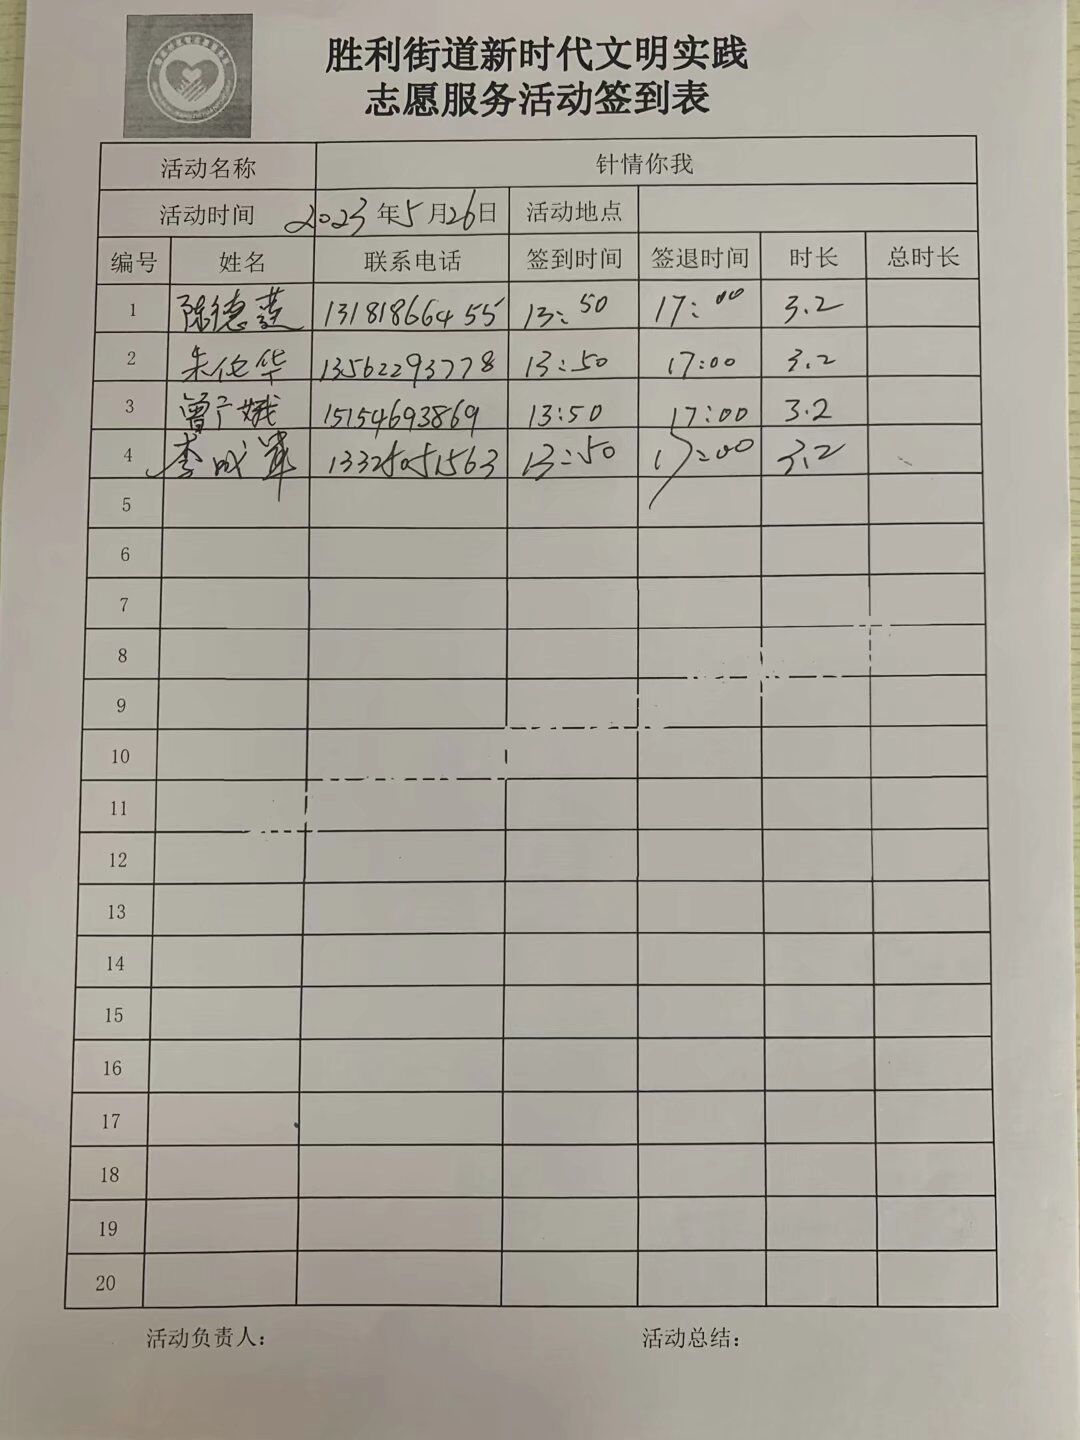 胜利街道新时代文明实践
志愿服务活动签到表
活动名称 针情你我
活动时间 2023年5月26日 活动地点
编号 姓名 联系电话 签到时间 签退时间 时长 总时长
1 陈德 13181866455 13:50 17:00 3.2
2 朱化华 13562293778 13:50 17:00 3.2
3 曾广娥 15154693869 13:50 17:00 3.2
4 李成 13325051563 13:50 17:00 3.2
5
6
7
8
9
10
11
12
13
14
15
16
17
18
19
20
活动负责人: 活动总结: